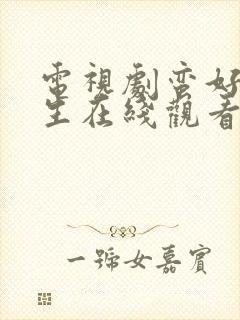 電視劇蛮好
生在綫觀看
一號女嘉賓